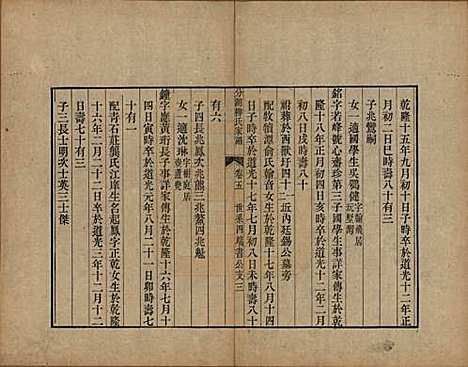 乾隆十五年九月初十日子時卒於道光十二年正
月初二日巳時壽八十有三
子兆鸞嗣
女一適國學生吳鶴健字翰飛居
銘字若峰號子齋珍第三子國學生事詳家傳生於乾
隆十八年正月初四日亥時卒於道光十二年二月
初八日戌時壽八十
祔葬於西獸圩四十二丘近內廷錫公墓旁
配牧犢潭俞氏翰音女生於乾隆十七年八月十四
日子時卒於道光十七年七月初八日未時壽八十
分湖柳氏家譜 卷五 世系四
有六
子四長兆鳳次兆熊三兆鰲四兆魁
女一適沈琳字樹庭居
鐘字應黃珩長子事詳家傳生於乾隆十六年七月十
四日寅時卒於道光元年八月二十一日卯時壽七
十有一
配青石莊熊氏江庠生名起鳳字正乾女生於乾隆
十六年二月十一日時卒於道光二年十二月十二
日壽七十有三
子三長士明次士英三士傑